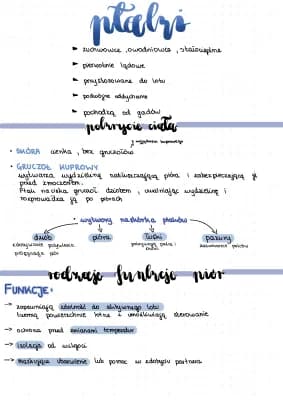 ptaki
► żuchwowce, owodniowce, stałocieplne
► pierwotnie lądowe
► przystosowane do lotu
► podwójne oddychanie
► pochodzą od gadów
pokrycie ciała
• SKÓRA cienka, bez gruczołów
z wyjątkiem kuprowego
• GRUCZOŁ KUPROWY
wytwarza wydzielinę natłuszczającą pióra i zabezpieczającą je
przed zmoczeniem.
Ptak naciska gruczoł dziobem, uwalniając wydzielinę i
rozprowadza ją po piórach
• wytwory naskórka ptaków
dziób pióra łuski pazury
pielęgnacja piór
rodzaje funkcje piór
FUNKCJE:
→ zapewniają zdolność do aktywnego lotu
tworzą powierzchnie lotne i umożliwiają sterowanie
→ ochrona przed zmianami temperatur
→ izolacja od wilgoci
→ maskujące ubarwienie lub pomoc w zdobyciu partnera